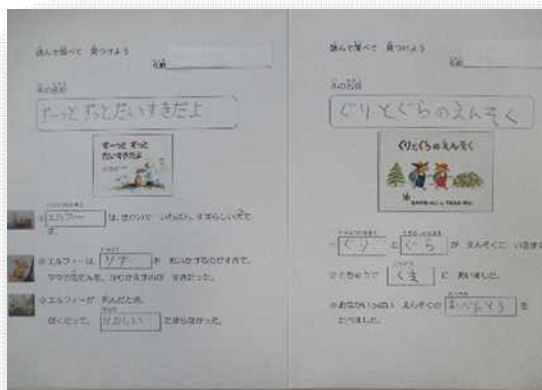 読んで調べて 見つけよう
名前
本の題名
ずーっと ずっと だいすきだよ
ずーっと ずっと
だいすきだよ
①エルフィー は、せかいで いちばん すばらしい犬で
す。
②エルフィーは、 りす を おいかけるのがすきで、
ママの花だんを、ほりかえすのが すきだった。
③エルフィーが 死んだとき、
ぼくだって、 かなしい たまらなかった。
読んで調べて 見つけよう
名前
本の題名
ぐりとぐらのえんそく
ぐりとぐらのえんそく
①ぐり と ぐら が えんそくに いきます
②とちゅうで くま に あいました。
③おなかいっぱい えんそくの おべんとう を
たべました。